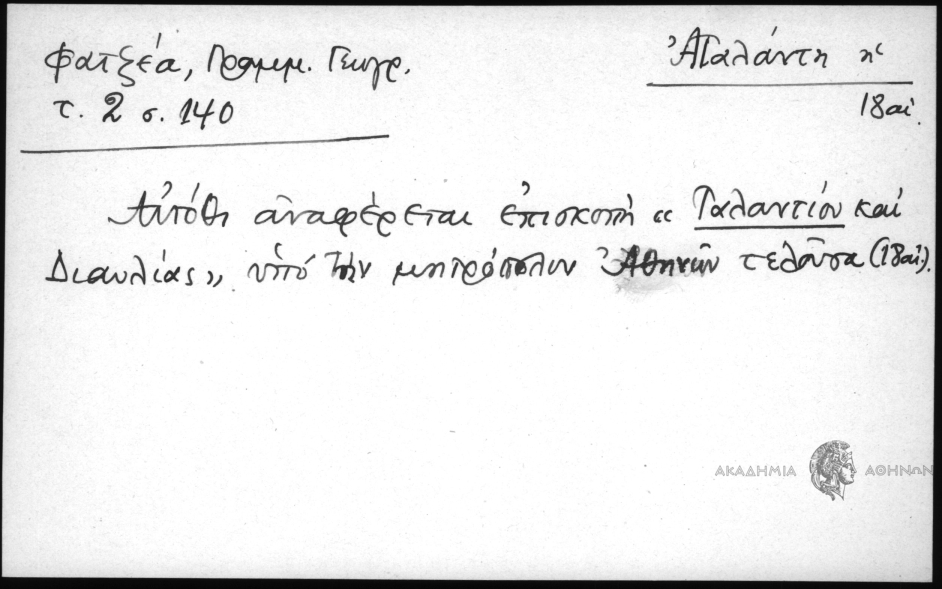 Φατζέα, Γραμμ. Γεωγρ.
τ. 2 σ. 140
Ἀταλάντη ἡ
18 αἰ.
Αὐτόθι ἀναφέρεται ἐπισκοπὴ « Ταλαντίου καὶ
Διαυλίας », ὑπὸ τὴν μητρόπολιν Ἀθηνῶν τελοῦσα (18 αἰ.).
ΑΚΑΔΗΜΙΑ ΑΘΗΝΩΝ